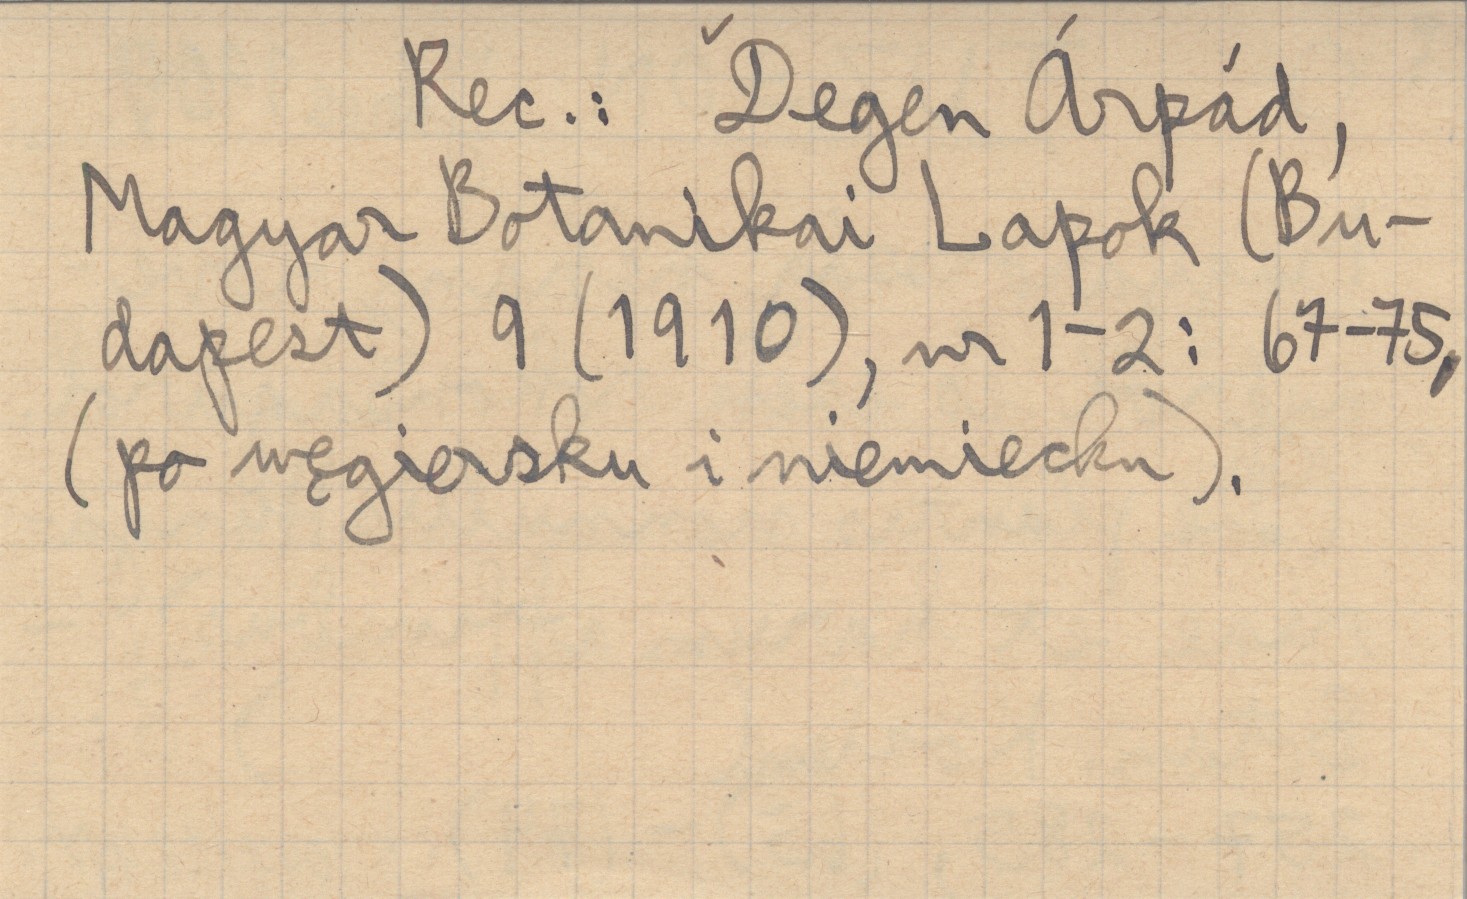 Rec.: Degen Árpád,
Magyar Botanikai Lapok (Bu-
dapest) 9 (1910), nr 1-2: 67-75,
(po węgiersku i niemiecku).